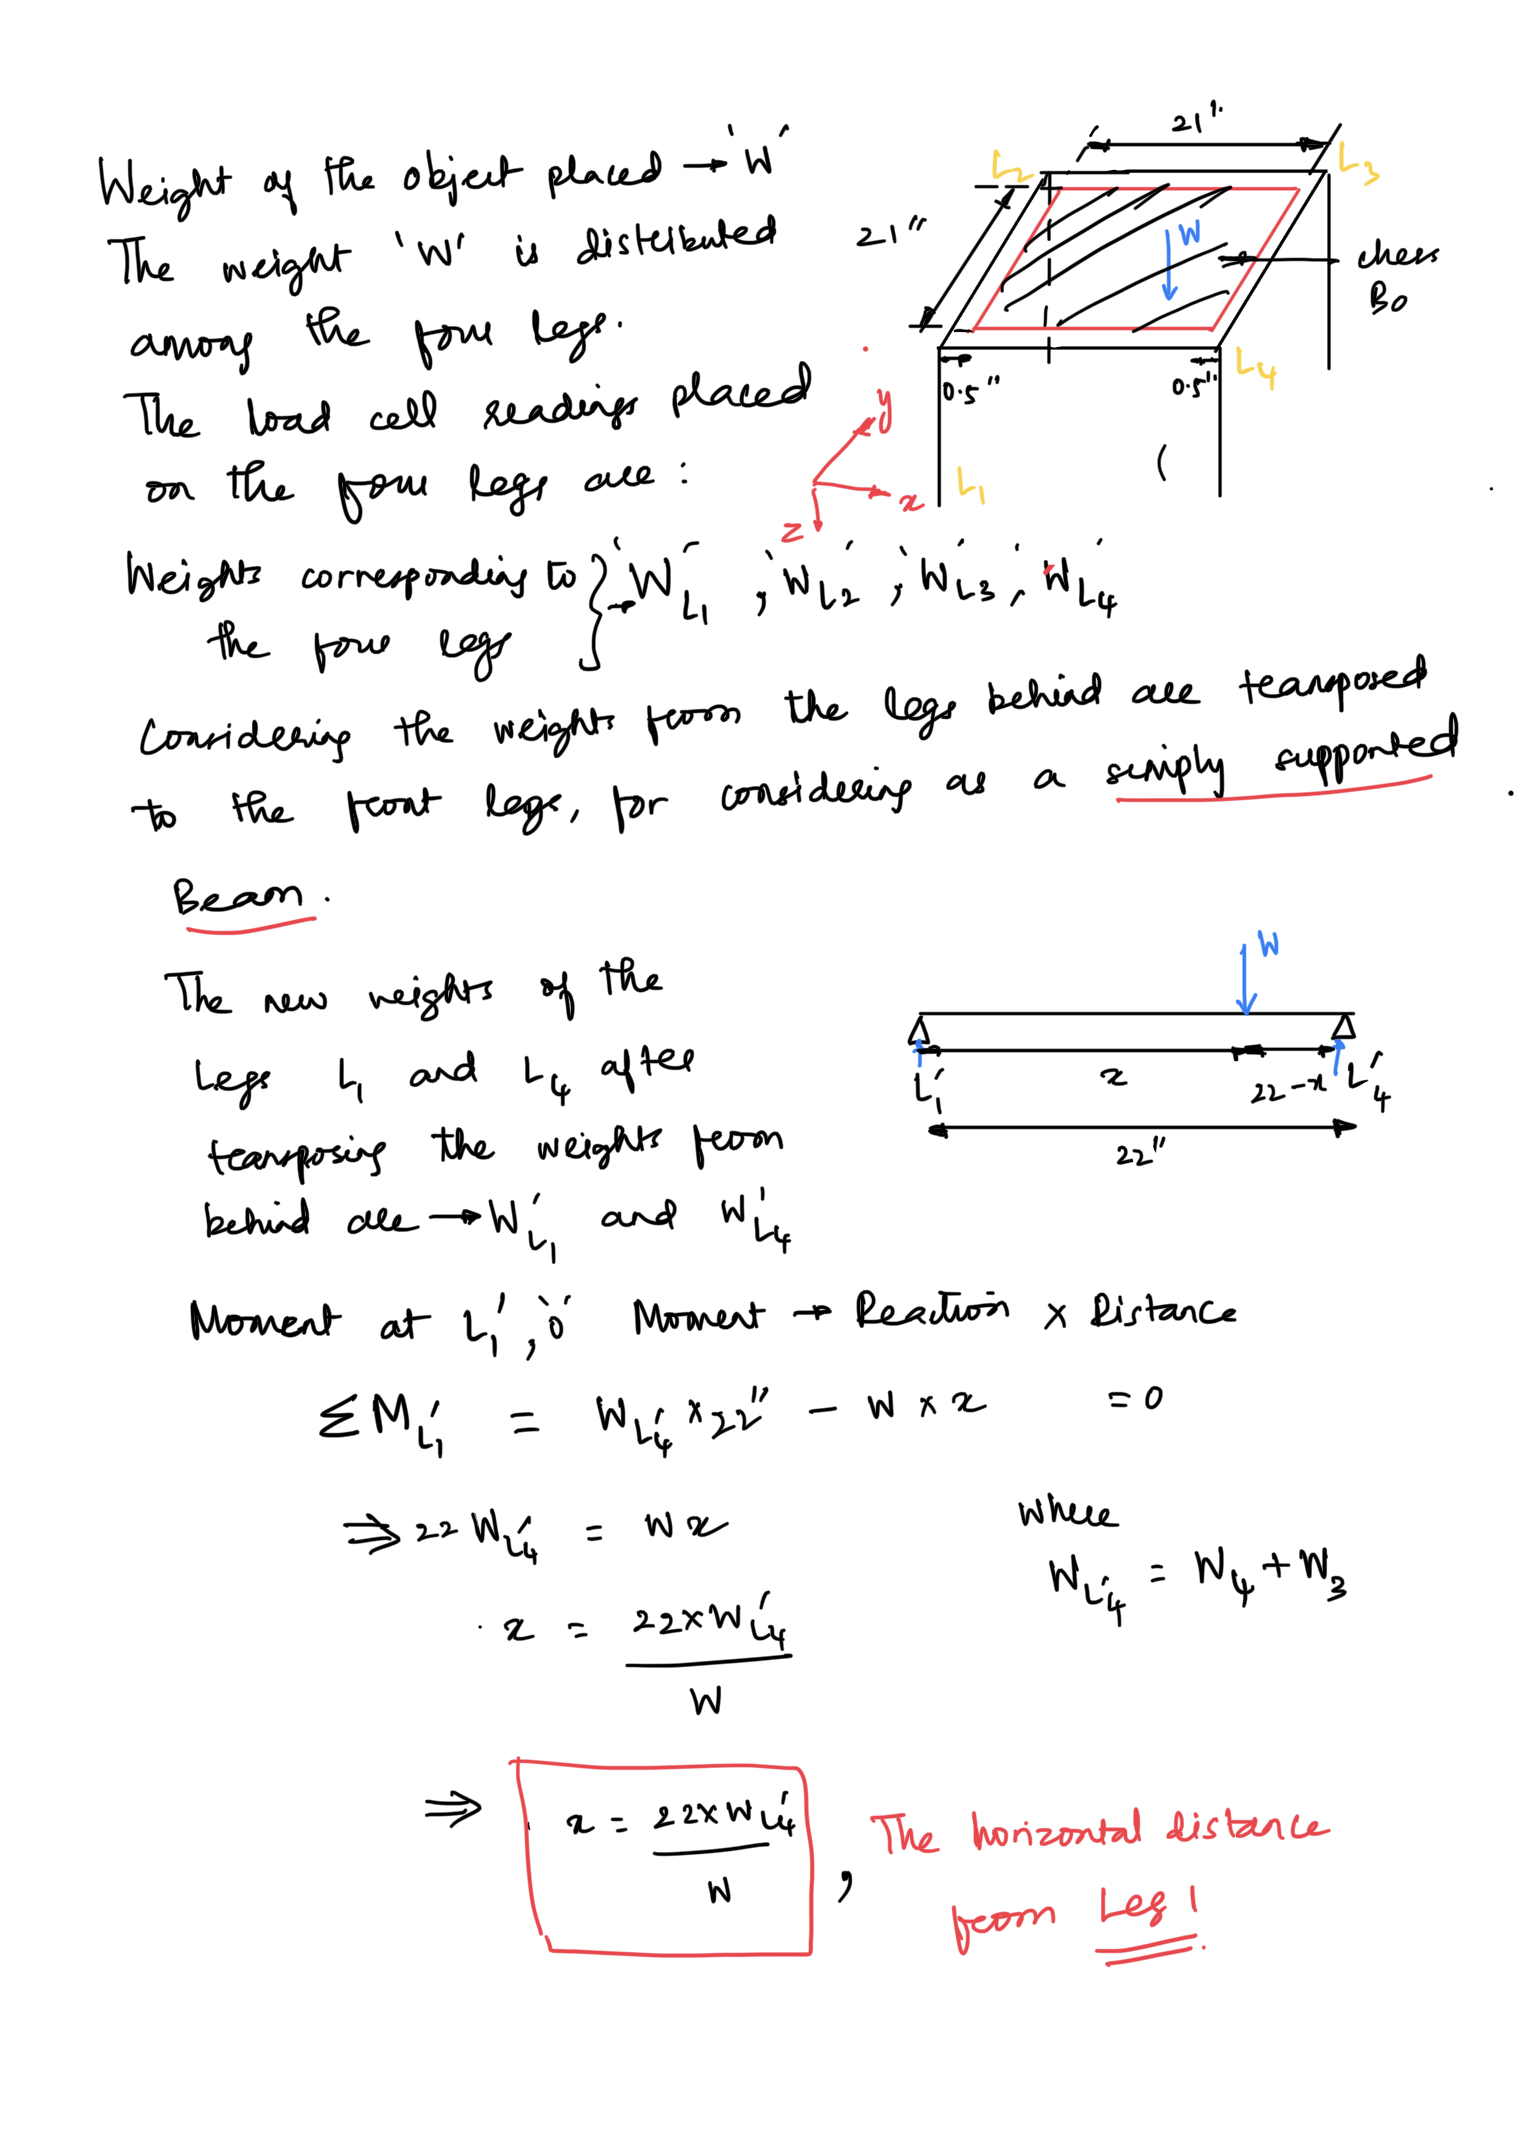 Weight of the object placed → 'W'
The weight 'W' is distributed
among the four legs.
The load cell readings placed
on the four legs are:
21"
L2
L3
21"
W
chess
Bo
0.5"
0.5"
L4
L1
y
x
z
(
Weights corresponding to
the four legs } → 'W_L1', 'W_L2', 'W_L3', 'W_L4'
Considering the weights from the legs behind are transposed
to the front legs, for considering as a simply supported
Beam.
The new weights of the
Legs L1 and L4 after
transposing the weights from
behind are → W_L1' and W_L4'
W
L1'
x
22-x
L4'
22"
Moment at L1', '0' Moment → Reaction x Distance
ΣM_L1' = W_L4' x 22" - W x x = 0
⇒ 22 W_L4' = Wx
where
W_L4' = W4 + W3
x = 22 x W_L4' / W
⇒ x = 22 x W_L4' / W , The horizontal distance
from Leg 1